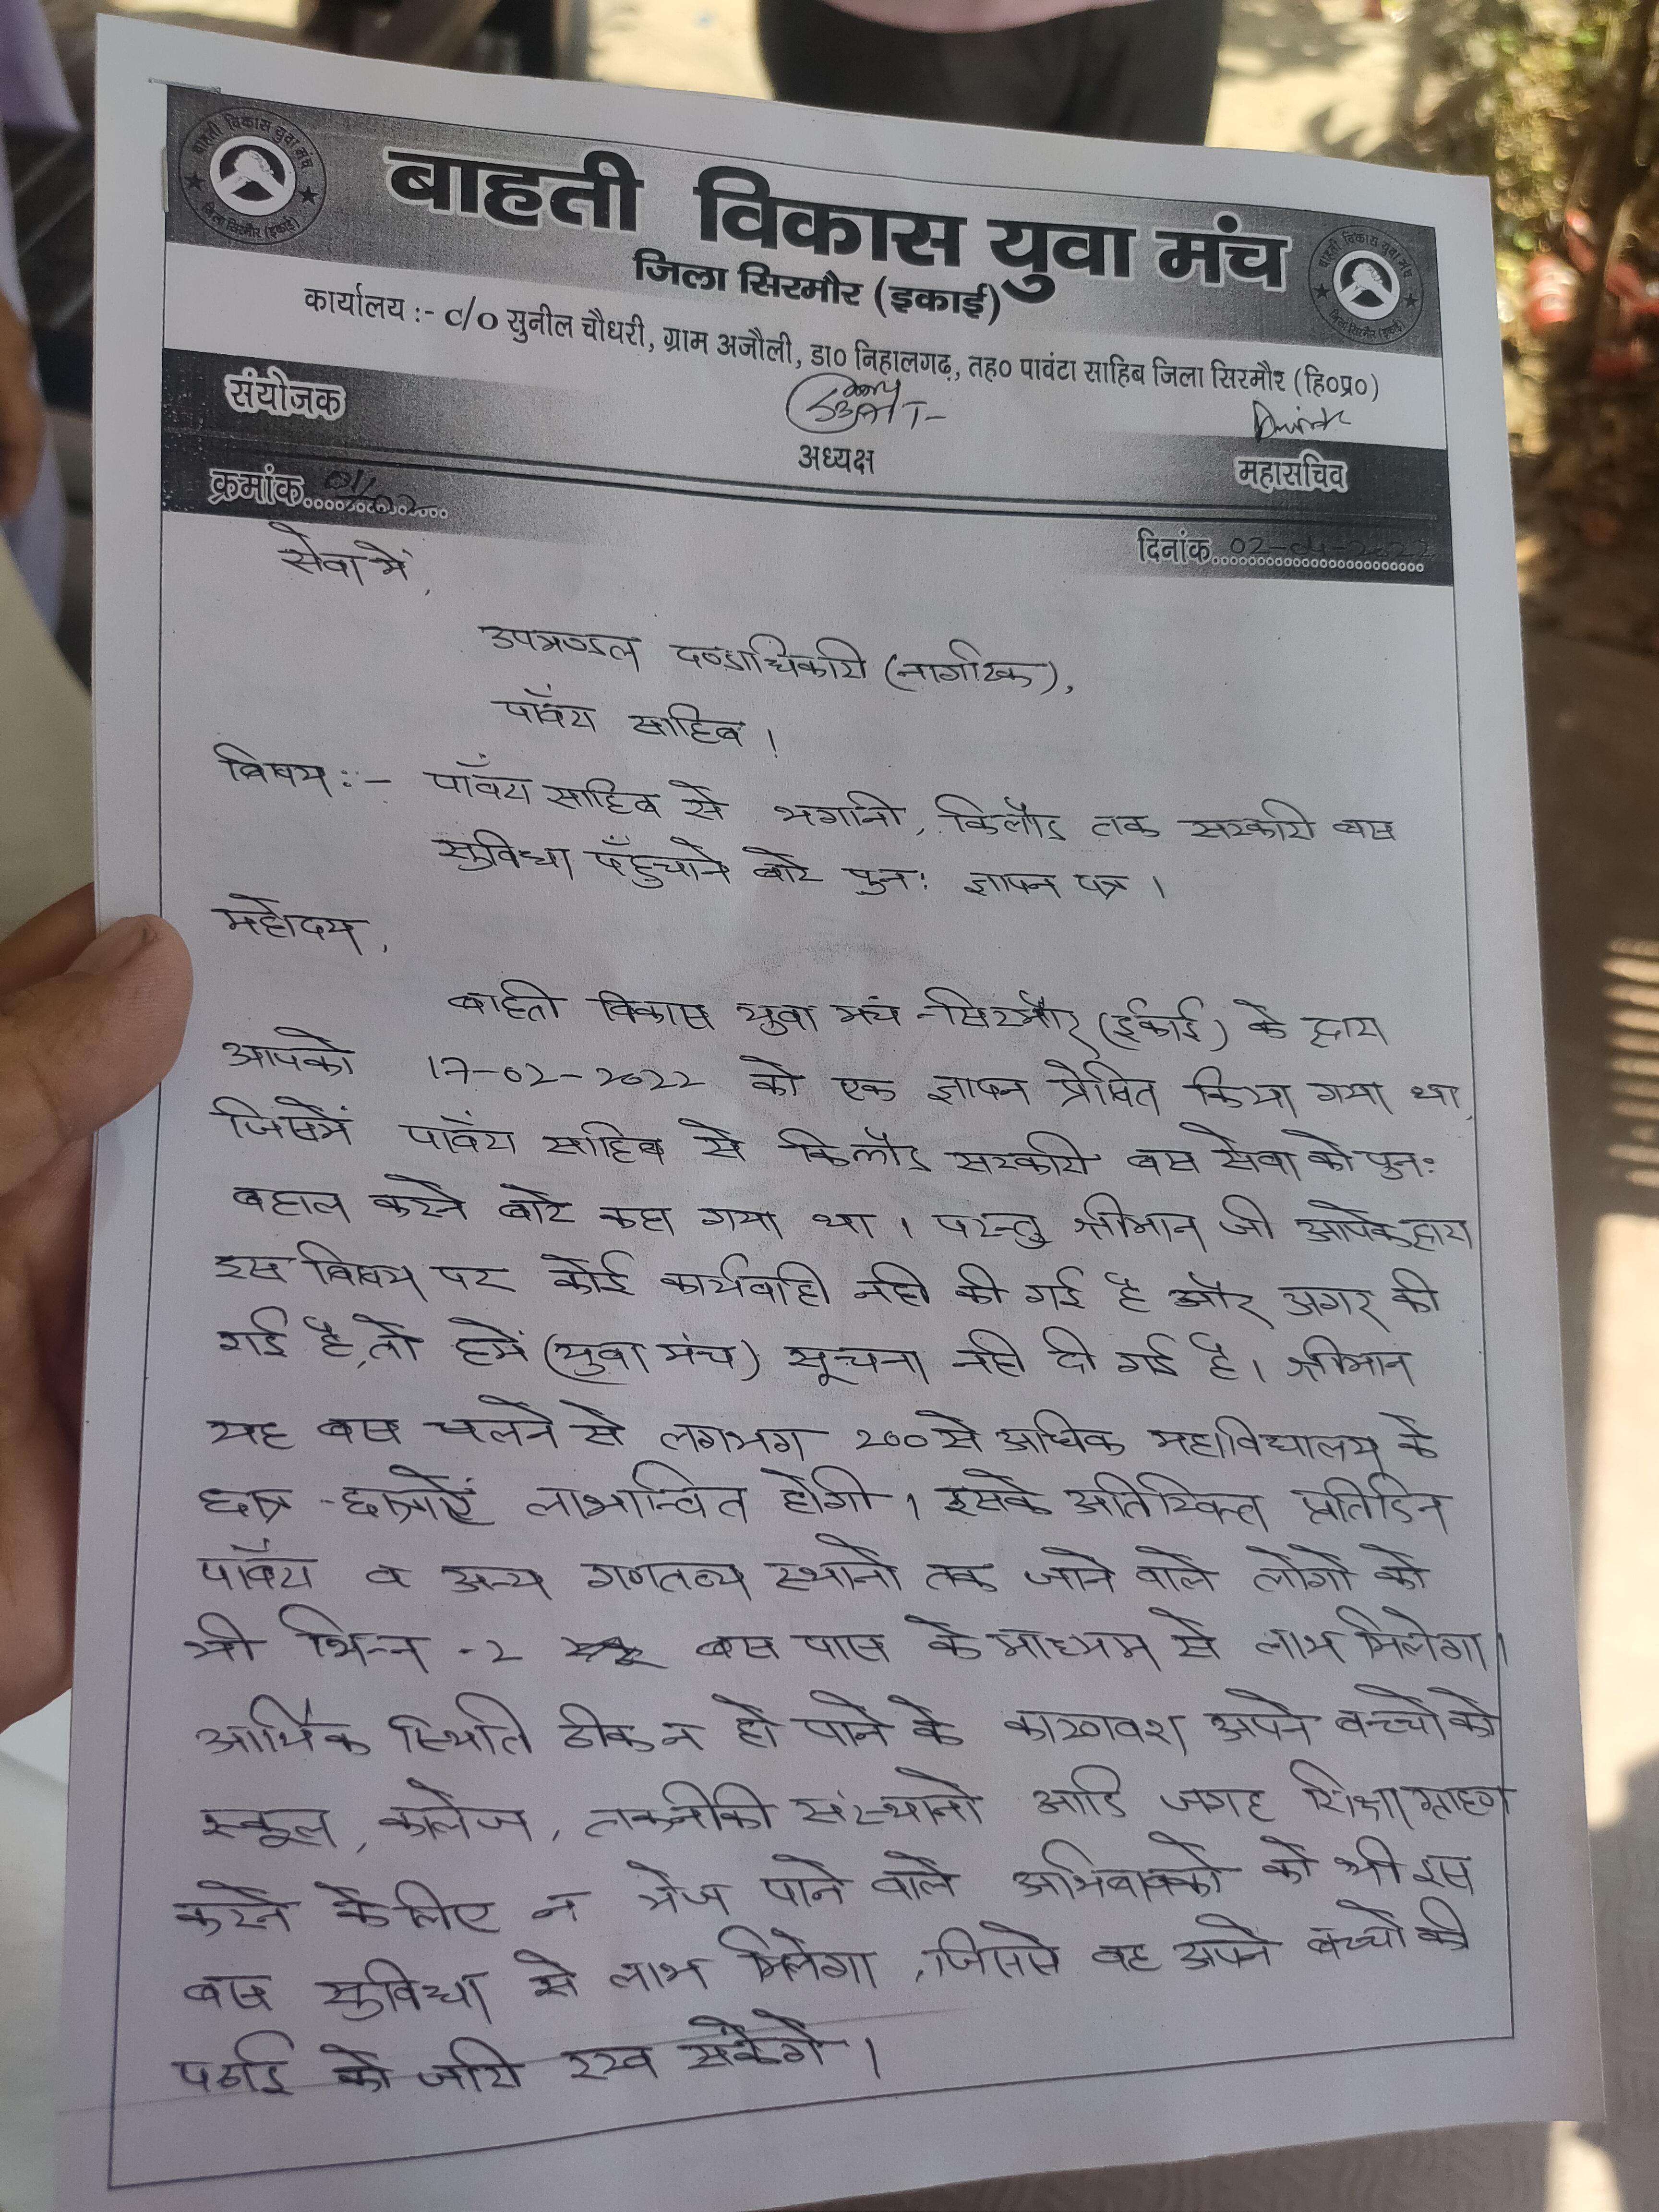 बाहती विकास युवा मंच
जिला सिरमौर (इकाई)
बाहती विकास युवा मंच
जिला सिरमौर (इकाई)
बाहती विकास युवा मंच
जिला सिरमौर (इकाई)
कार्यालय :- c/o सुनील चौधरी, ग्राम अजौली, डा० निहालगढ़, तह० पावंटा साहिब जिला सिरमौर (हि०प्र०)
संयोजक
अध्यक्ष
महासचिव
क्रमांक 01/02
दिनांक 02-04-2022
सेवा में,
उपमण्डल दण्डाधिकारी (नागरिक),
पाँवटा साहिब ।
विषय :- पाँवटा साहिब से भगानी, किलौड तक सरकारी बस
सुविधा पँहुचाने बारे पुनः ज्ञापन पत्र ।
महोदय,
बाहती विकास युवा मंच -सिरमौर (ईकाई) के द्वारा
आपको 17-02-2022 को एक ज्ञापन प्रेषित किया गया था,
जिसमें पांवटा साहिब से किलौड सरकारी बस सेवा को पुनः
बहाल करने बारे कहा गया था । परन्तु श्रीमान जी आपके द्वारा
इस विषय पर कोई कार्यवाही नही की गई है और अगर की
गई है, तो हमें (युवा मंच) सूचना नही दी गई है । श्रीमान
यह बस चलने से लगभग 200 से अधिक महाविद्यालय के
छात्र -छात्राऐं लाभान्वित होगी । इसके अतिरिक्त प्रतिदिन
पांवटा व अन्य गणतव्य स्थानो तक जाने वाले लोगो को
भी भिन्न -2 बस पास के माध्यम से लाभ मिलेगा ।
आर्थिक स्थिति ठीक न हो पाने के कारणवश अपने बच्चो को
स्कूल, कालेज, तकनीकी संस्थानो आदि जगह शिक्षा ग्रहण
करने के लिए न भेज पाने वाले अभिवावको को भी इस
बस सुविधा से लाभ मिलेगा, जिससे वह अपने बच्चो की
पढाई को जारी रख सकेंगे ।